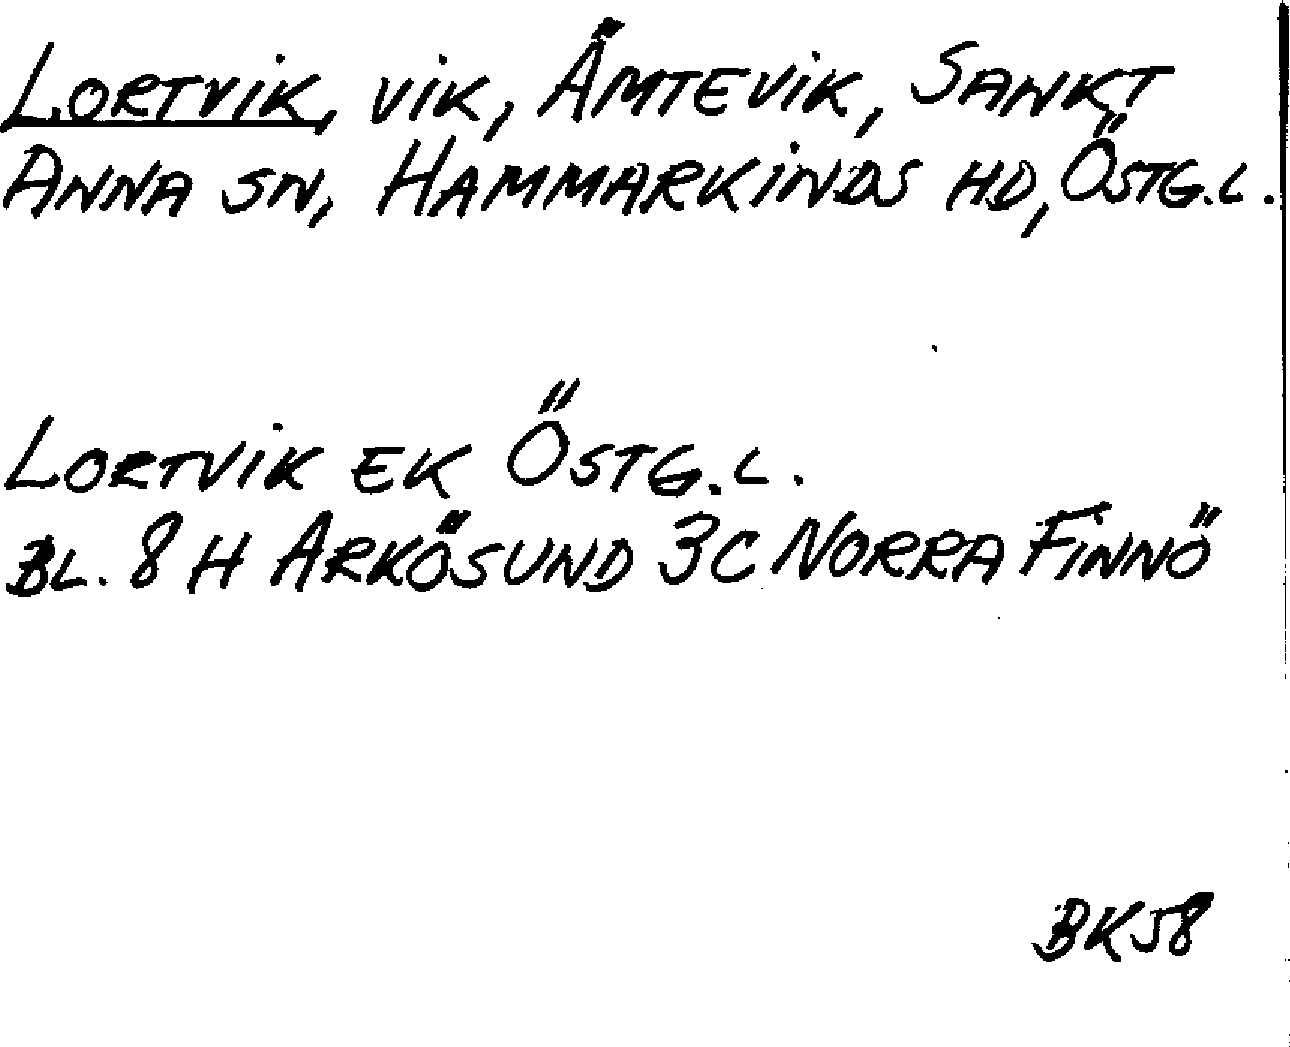 LORTVIK, VIK, ÄMTEVIK, SANKT
ANNA SN, HAMMARKINDS HD, ÖSTG.L.
LORTVIK EK ÖSTG.L.
BL. 8 H ARKÖSUND 3C NORRA FINNÖ
BK58